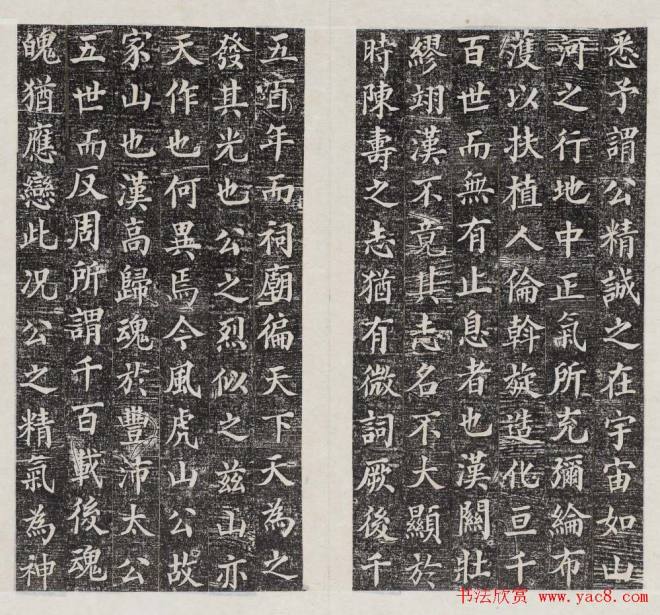 悉予謂公精誠之在宇宙如山
河之行地中正氣所充彌綸布
濩以扶植人倫斡旋造化亘千
百世而無有止息者也漢關壯
繆翊漢不竟其志名不大顯於
時陳壽之志猶有微詞厥後千
五百年而祠廟徧天下天為之
發其光也公之烈似之茲山亦
天作也何異焉今風虎山公故
家山也漢高歸魂於豐沛太公
五世而反周所謂千百載後魂
魄猶應戀此况公之精氣為神
书法欣赏 www.yac8.com